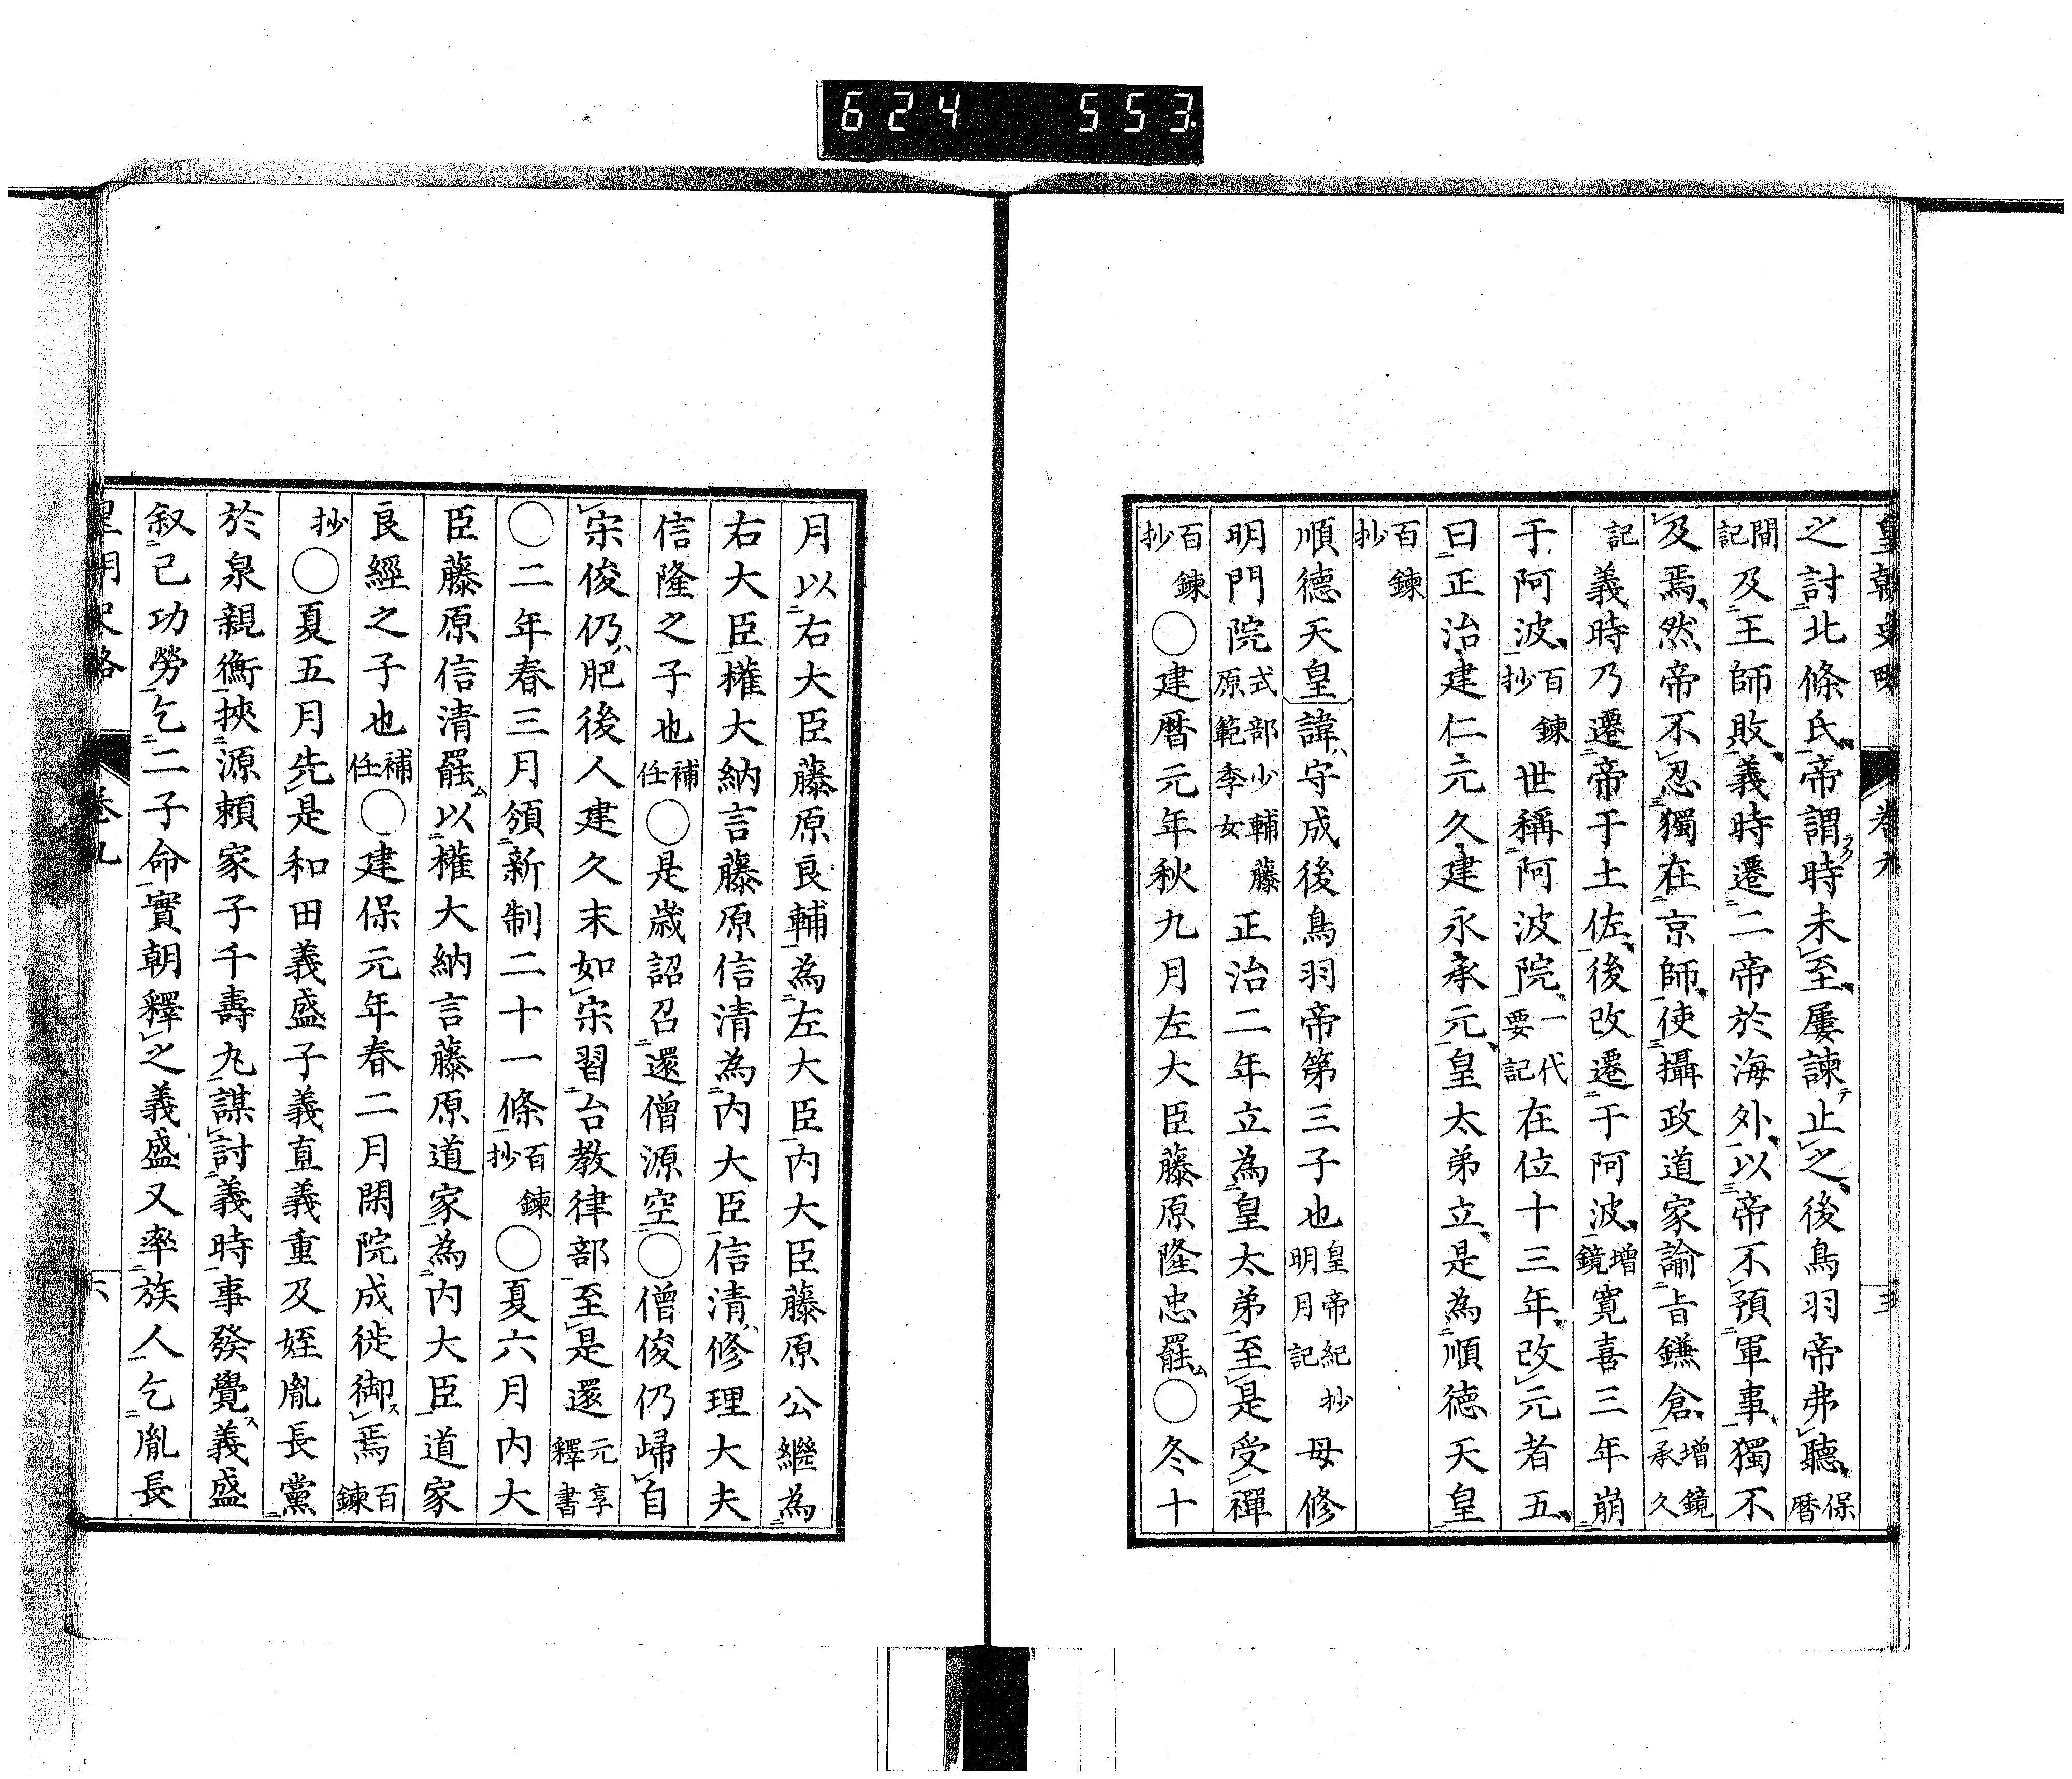 624 553
皇朝史略 卷九
之討北條氏帝謂時未至屢諫止之後鳥羽帝弗聽保暦
間記及王師敗義時遷二帝於海外以帝不預軍事獨不
及焉然帝不忍獨在京師使攝政道家諭旨鎌倉增鏡承久
記義時乃遷帝于土佐後改遷于阿波增鏡寛喜三年崩
于阿波百鍊抄世稱阿波院一代要記在位十三年改元者五
曰正治建仁元久建永承元皇太弟立是為順德天皇
百鍊抄
順德天皇諱守成後鳥羽帝第三子也皇帝紀抄明月記母修
明門院式部少輔藤原範季女正治二年立為皇太弟至是受禪
百鍊抄○建暦元年秋九月左大臣藤原隆忠罷○冬十
月以右大臣藤原良輔為左大臣內大臣藤原公繼為
右大臣權大納言藤原信清為內大臣信清修理大夫
信隆之子也補任○是歳詔召還僧源空○僧俊仍歸自
宋俊仍肥後人建久末如宋習台教律部至是還元亨釋書
○二年春三月頒新制二十一條百鍊抄○夏六月內大
臣藤原信清罷以權大納言藤原道家為內大臣道家
良經之子也補任○建保元年春二月閑院成徙御焉百鍊
抄○夏五月先是和田義盛子義直義重及姪胤長黨
於泉親衡挾源頼家子千壽丸謀討義時事發覺義盛
叙己功勞乞二子命實朝釋之義盛又率族人乞胤長
皇朝史略 卷九 六